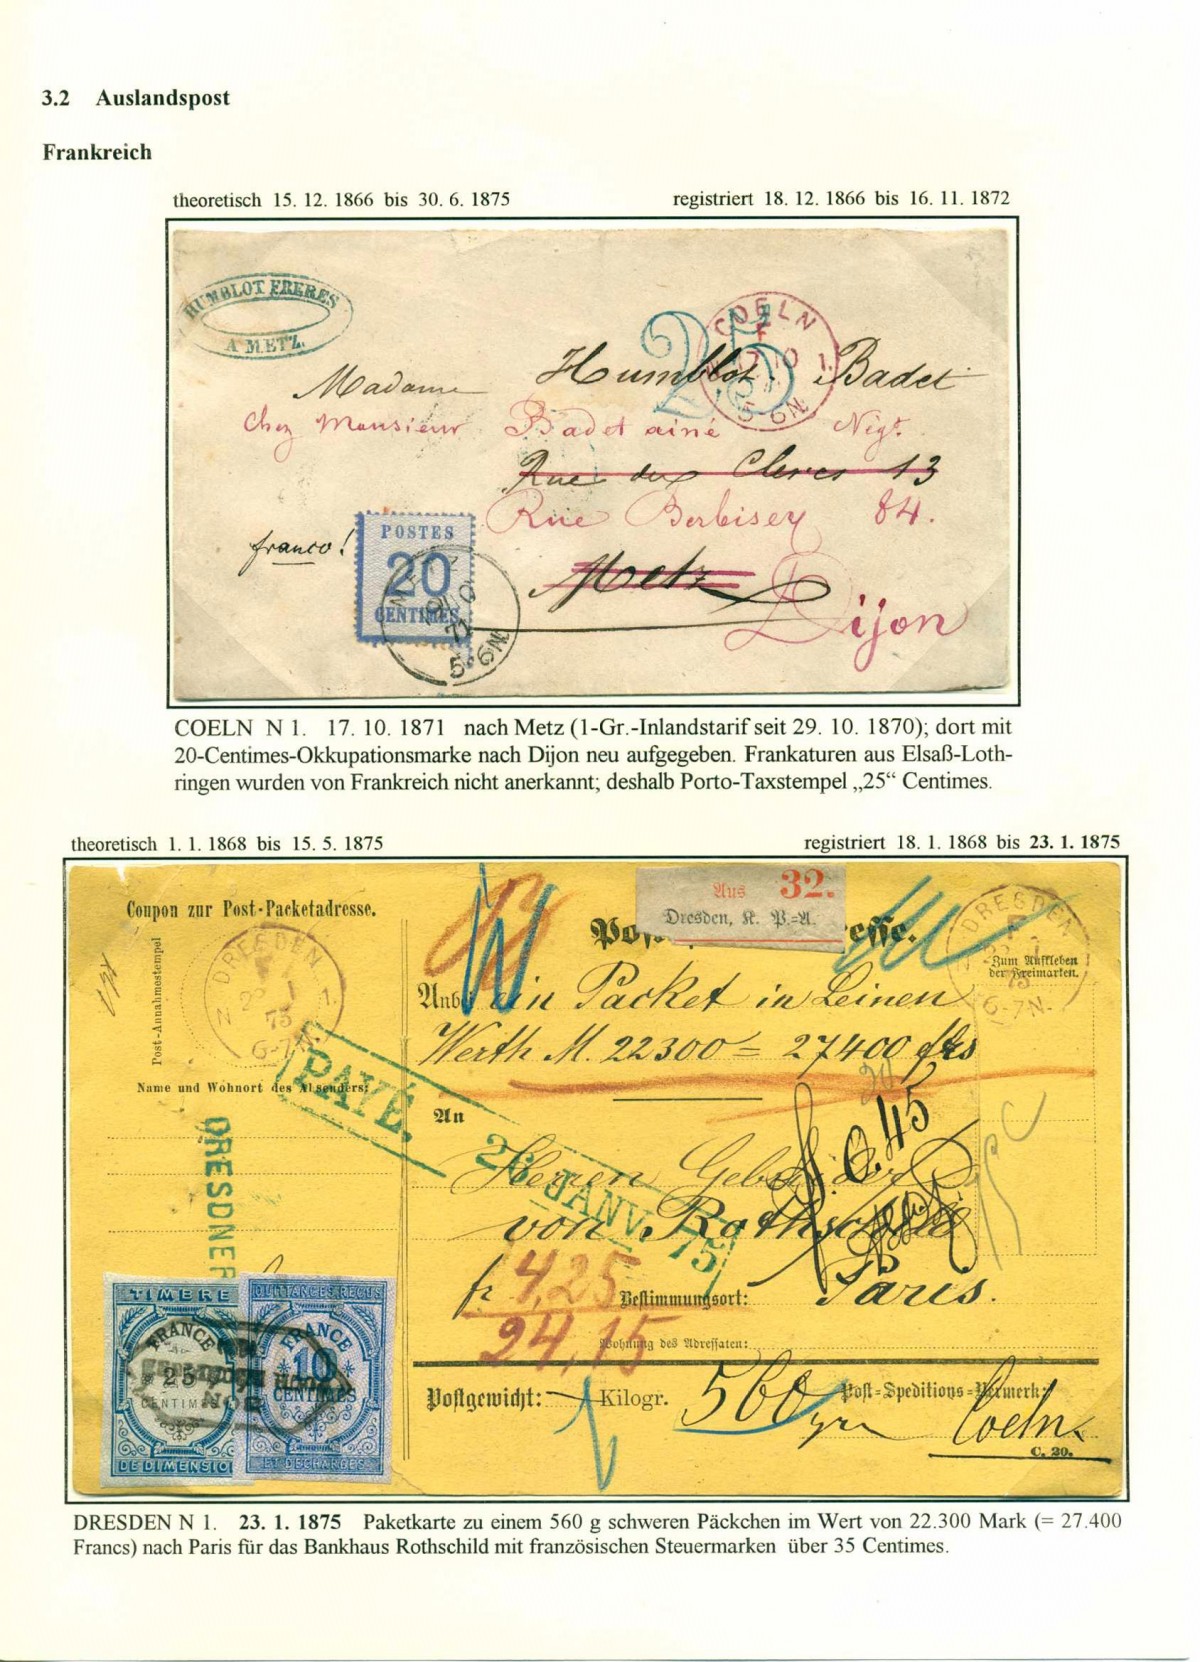 3.2 Auslandspost
Frankreich
theoretisch 15. 12. 1866 bis 30. 6. 1875 registriert 18. 12. 1866 bis 16. 11. 1872
HUMBLOT FRERES
A METZ.
25
COELN
F
17 10
N 1.
5-6N.
Madame Humblot Badet
Chez Monsieur Badet ainé Nigt.
Rue des Clercs 13
Rue Berbisey 84.
franco!
POSTES
20
CENTIMES
71
5-6N
Metz
Dijon
COELN N 1. 17. 10. 1871 nach Metz (1-Gr.-Inlandstarif seit 29. 10. 1870); dort mit
20-Centimes-Okkupationsmarke nach Dijon neu aufgegeben. Frankaturen aus Elsaß-Loth-
ringen wurden von Frankreich nicht anerkannt; deshalb Porto-Taxstempel „25“ Centimes.
theoretisch 1. 1. 1868 bis 15. 5. 1875 registriert 18. 1. 1868 bis 23. 1. 1875
Coupon zur Post-Packetadresse.
Aus 32.
Dresden, K. P.-A.
Post-Annahmestempel
DRESDEN
N 1.
75
6-7N.
DRESDEN
75
6-7N.
Zum Aufkleben
der Freimarken.
Anbei ein Packet in Leinen
Werth M. 22300 = 27400 frs
Name und Wohnort des Absenders:
PAYÉ.
26 JANV. 75
An
Herren Gebrüder
von Rothschild
45
DRESDNER
fr 4,25
24,15
Bestimmungsort: Paris.
Wohnung des Adressaten:
Postgewicht: Kilogr. 560 gr
Post-Speditions-Vermerk:
Coeln.
C. 20.
TIMBRE
FRANCE
25
CENTIMES
DE DIMENSION
QUITTANCES REÇUS
FRANCE
10
CENTIMES
ET DÉCHARGES
DRESDEN N 1. 23. 1. 1875 Paketkarte zu einem 560 g schweren Päckchen im Wert von 22.300 Mark (= 27.400
Francs) nach Paris für das Bankhaus Rothschild mit französischen Steuermarken über 35 Centimes.